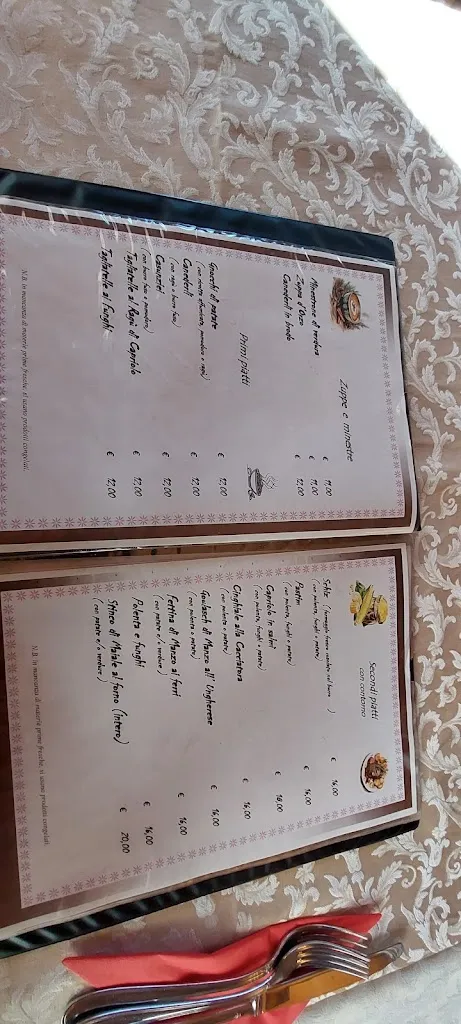 Zuppe e minestre
Minestrone di verdura € 11,00
Zuppa d'Orzo € 11,00
Canederli in brodo € 12,00
Primi piatti
Gnocchi di patate € 12,00
Canederli € 12,00
(con ragù o burro fuso)
Casunziei € 12,00
(con burro fuso o pomodoro)
Tagliatelle al Ragù di Capriolo € 12,00
Tagliatelle ai funghi € 12,00
N.B. in mancanza di materia prime fresche, si usano prodotti congelati.
Secondi piatti
con contorno
Schiz (formaggio fresco
(con polenta, funghi o patate) € 16,00
Pastin € 16,00
(con polenta, funghi o patate)
Capriolo in salmì € 18,00
(con polenta, funghi o patate)
Cinghiale alla Cacciatora € 16,00
(con polenta o patate)
Goulasch di Manzo all' Ungherese € 16,00
(con polenta o patate)
Fettina di Manzo ai ferri € 16,00
(con patate e/o verdure)
Polenta e funghi € 16,00
Stinco di Maiale al forno (intero) € 20,00
(con patate e/o verdure)
N.B. in mancanza di materia prime fresche, si usano prodotti congelati.